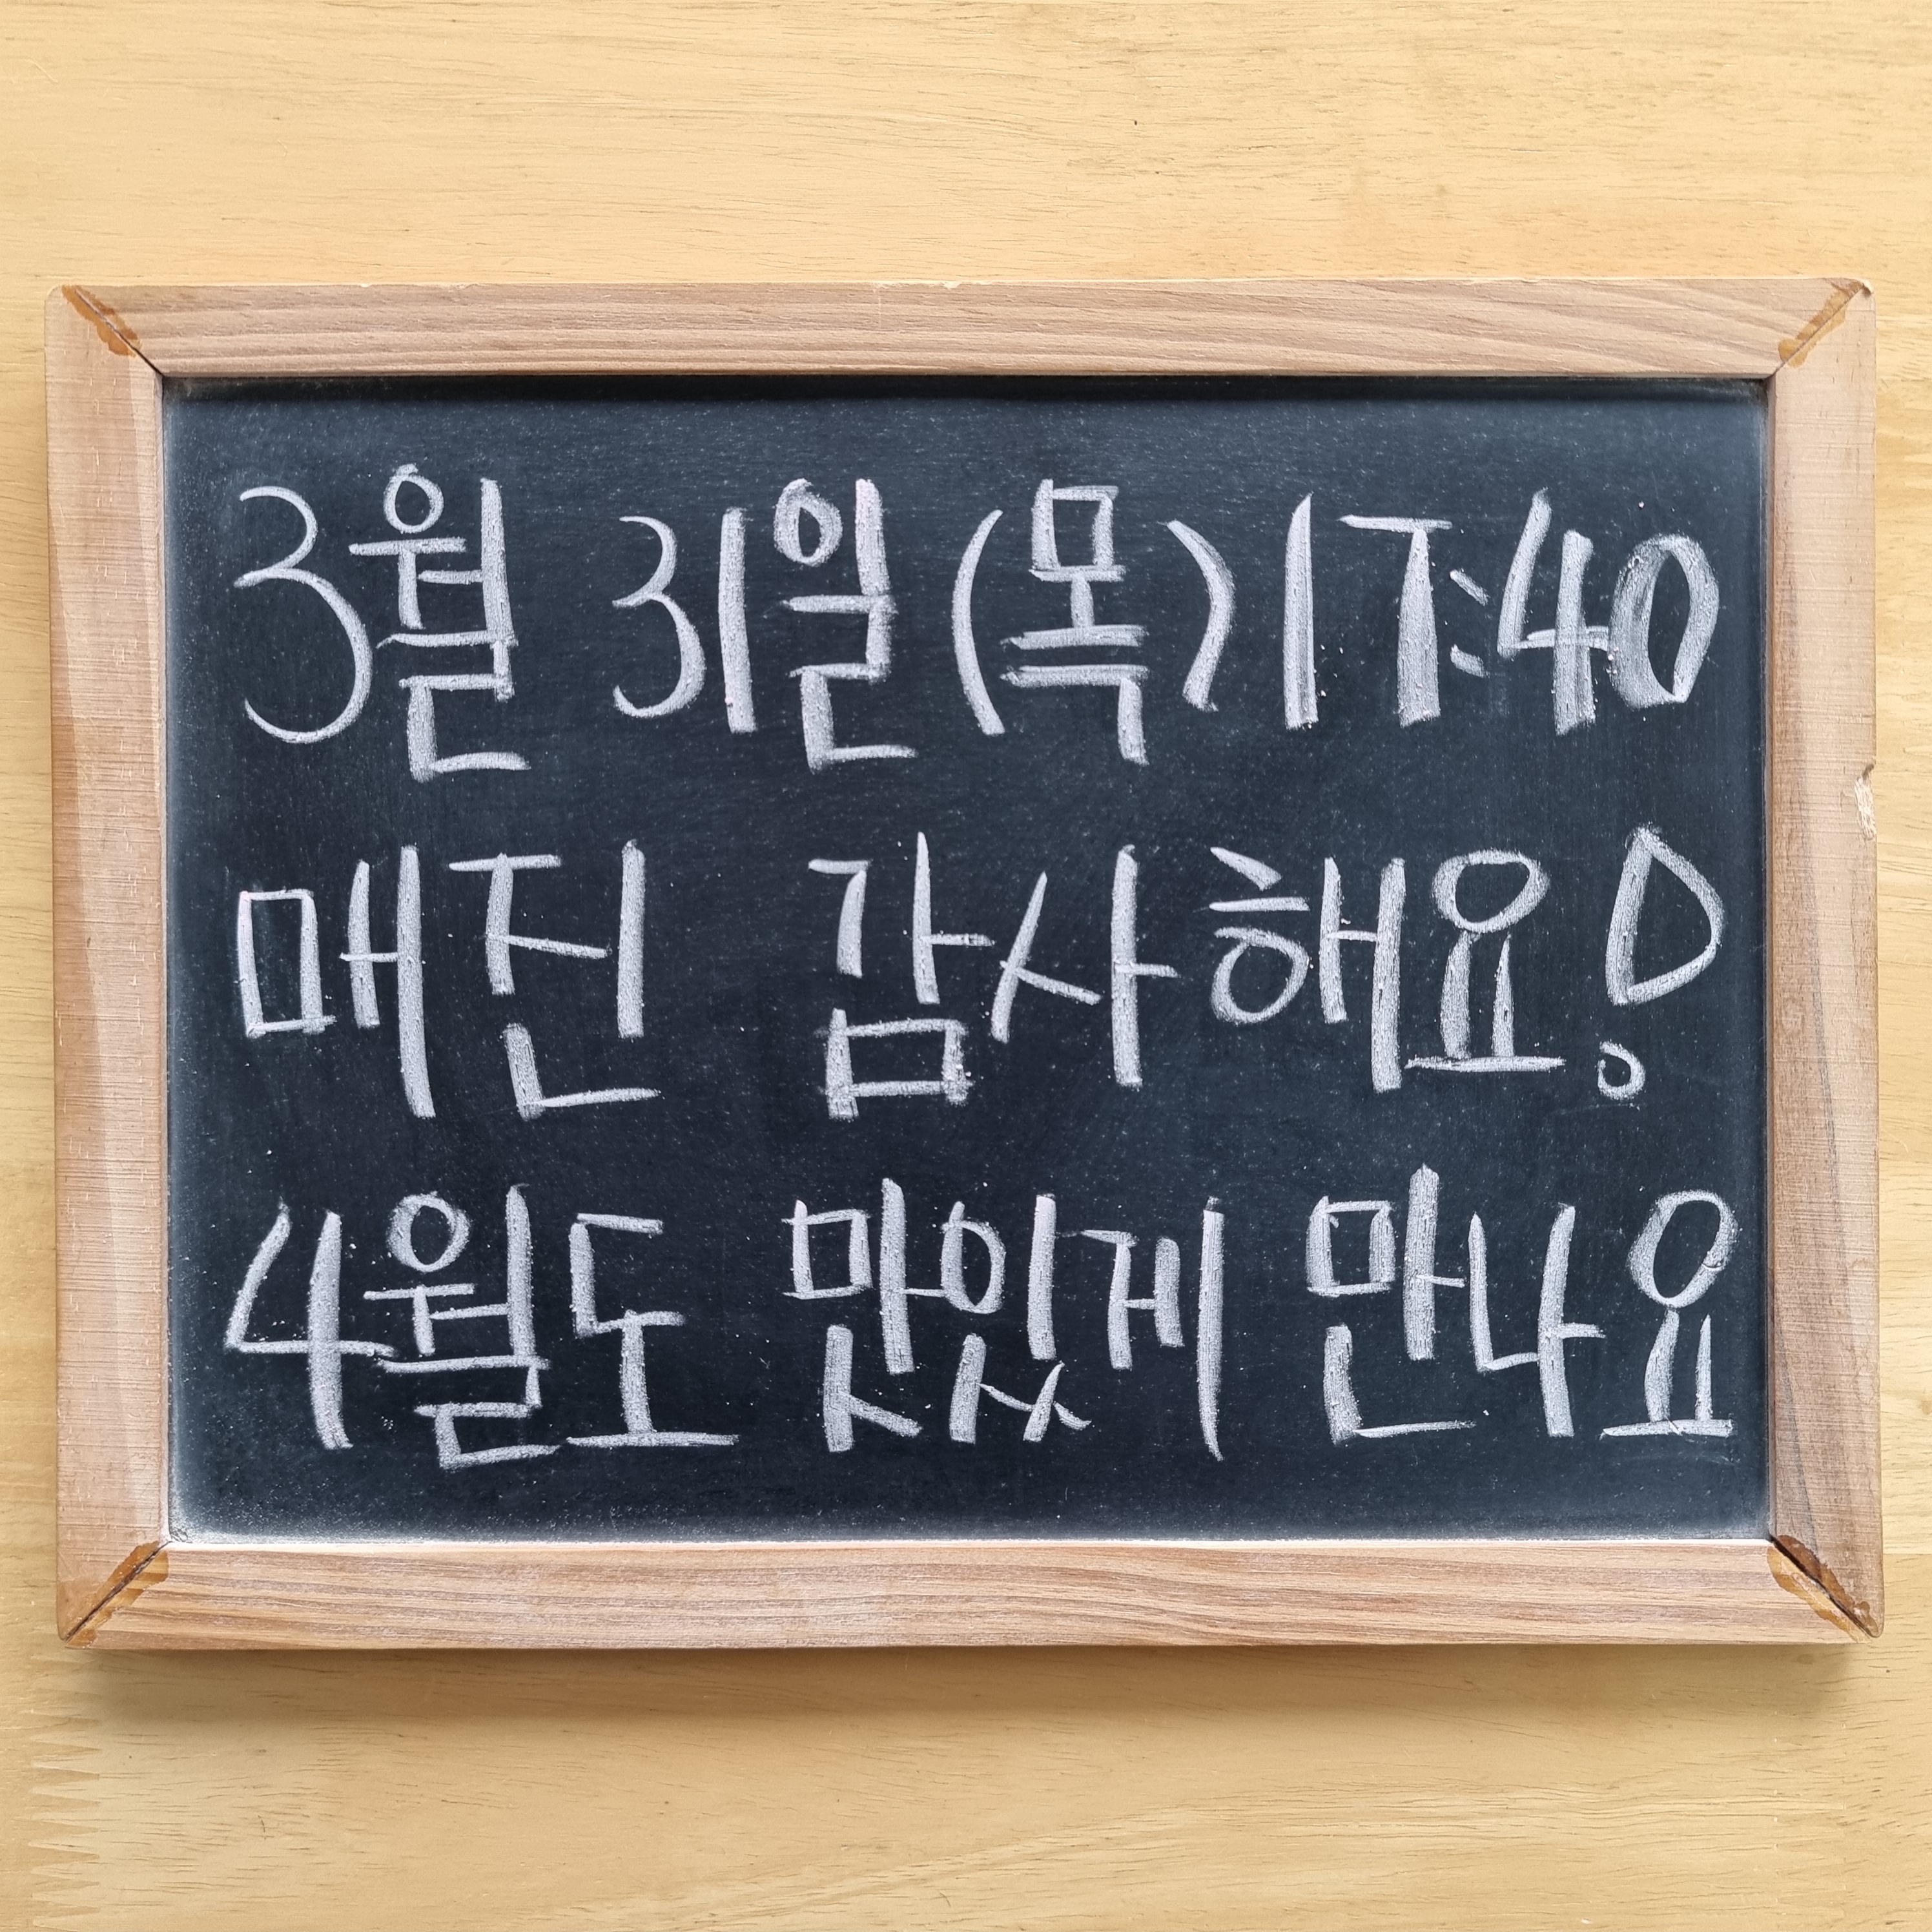 3월 31일(목) 17:40
매진 감사해요!
4월도 맛있게 만나요